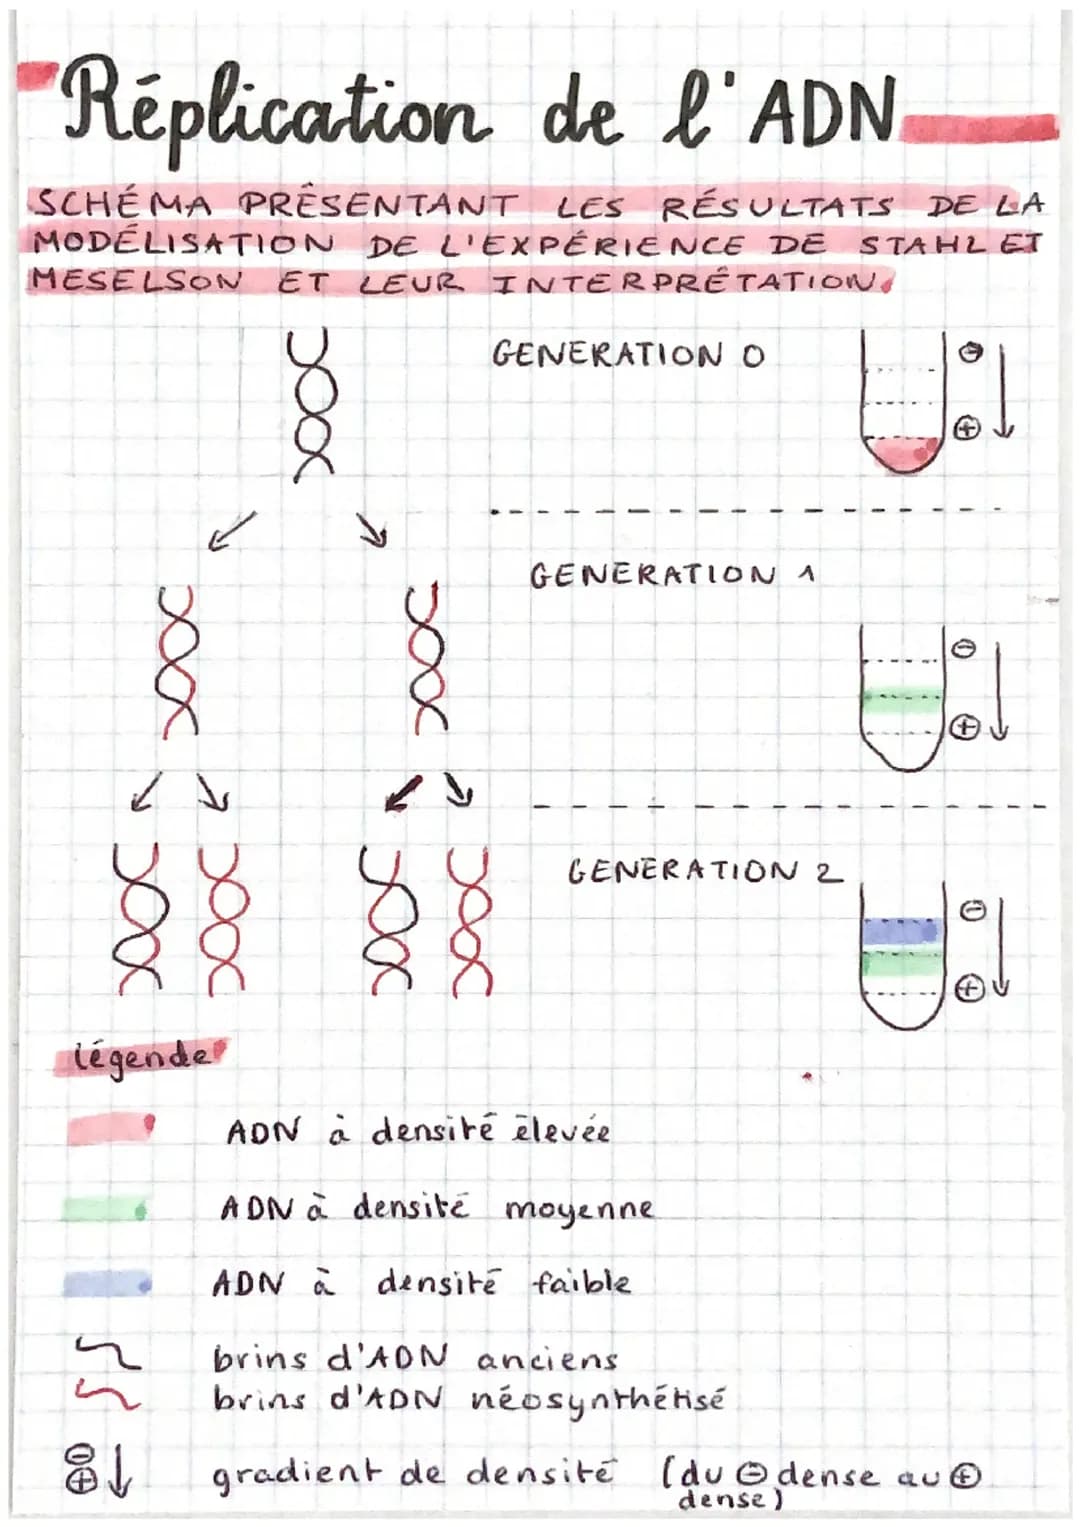 Réplication de l'ADN
SCHÉMA PRÉSENTANT LES RÉSULTATS DE LA
MODÉLISATION DE L'EXPÉRIENCE DE STAHL ET
MESELSON ET LEUR INTERPRÉTATION.
GENERATION 0
⊖
⊕
GENERATION 1
⊖
⊕
GENERATION 2
⊖
⊕
légende
ADN à densité élevée
ADN à densité moyenne
ADN à densité faible
brins d'ADN anciens
brins d'ADN néosynthétisé
⊖
⊕
gradient de densité (du ⊖ dense au ⊕
dense)